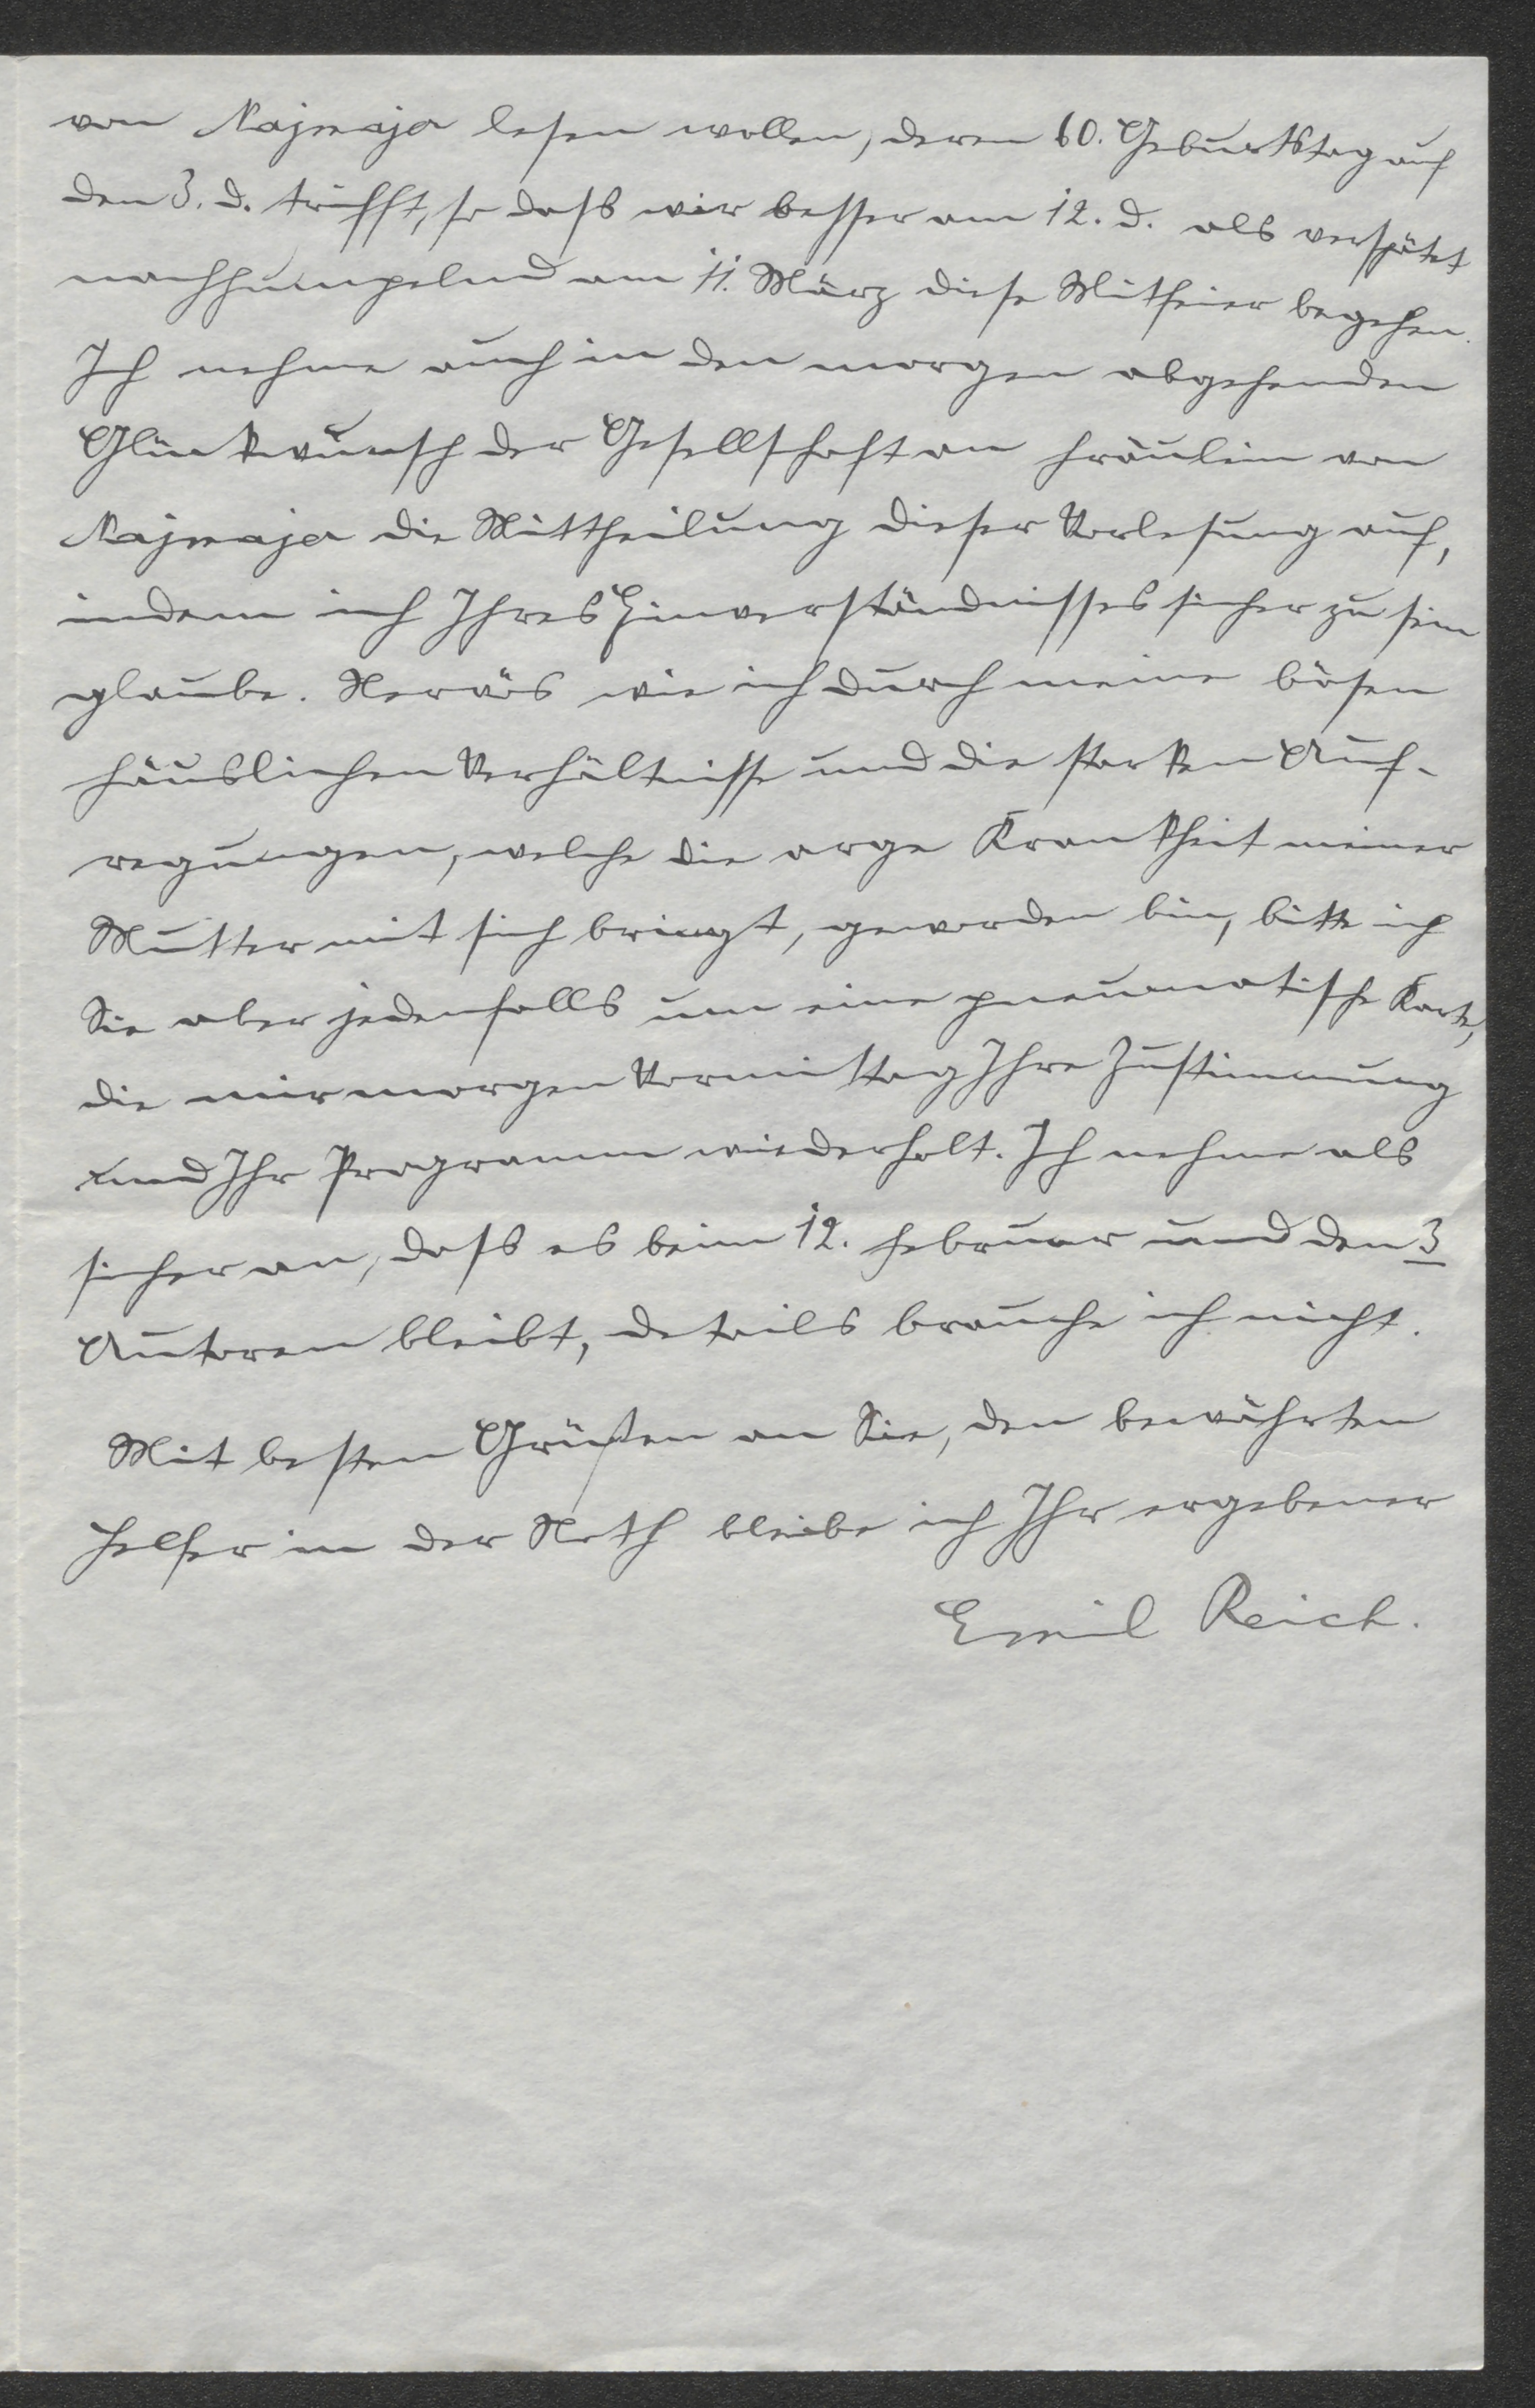 von Najmajer lesen wollen, deren 60. Geburtstag auf
den 3. d. trifft, so dass wir besser am 12. d. als verspätet
nachhumpelnd am 11. März diese Mitfeier begehen.
Ich nehme auch in den morgen abgehenden
Glückwunsch der Gesellschaft an Fräulein von
Najmajer die Mittheilung dieser Vorlesung auf,
indem ich Ihres Einverständnisses sicher zu sein
glaube. Nervös wie ich durch meine bösen
häuslichen Verhältnisse und die starken Auf-
regungen, welche die arge Krankheit meiner
Mutter mit sich bringt, geworden bin, bitte ich
Sie aber jedenfalls um eine pneumatische Karte,
die mir morgen Vormittag Ihre Zustimmung
und Ihr Programm wiederholt. Ich nehme als
sicher an, dass es beim 12. Februar und den 3
Autoren bleibt, details brauche ich nicht.
Mit besten Grüßen an Sie, den bewährten
Helfer in der Noth bleibe ich Ihr ergebener
Emil Reich.